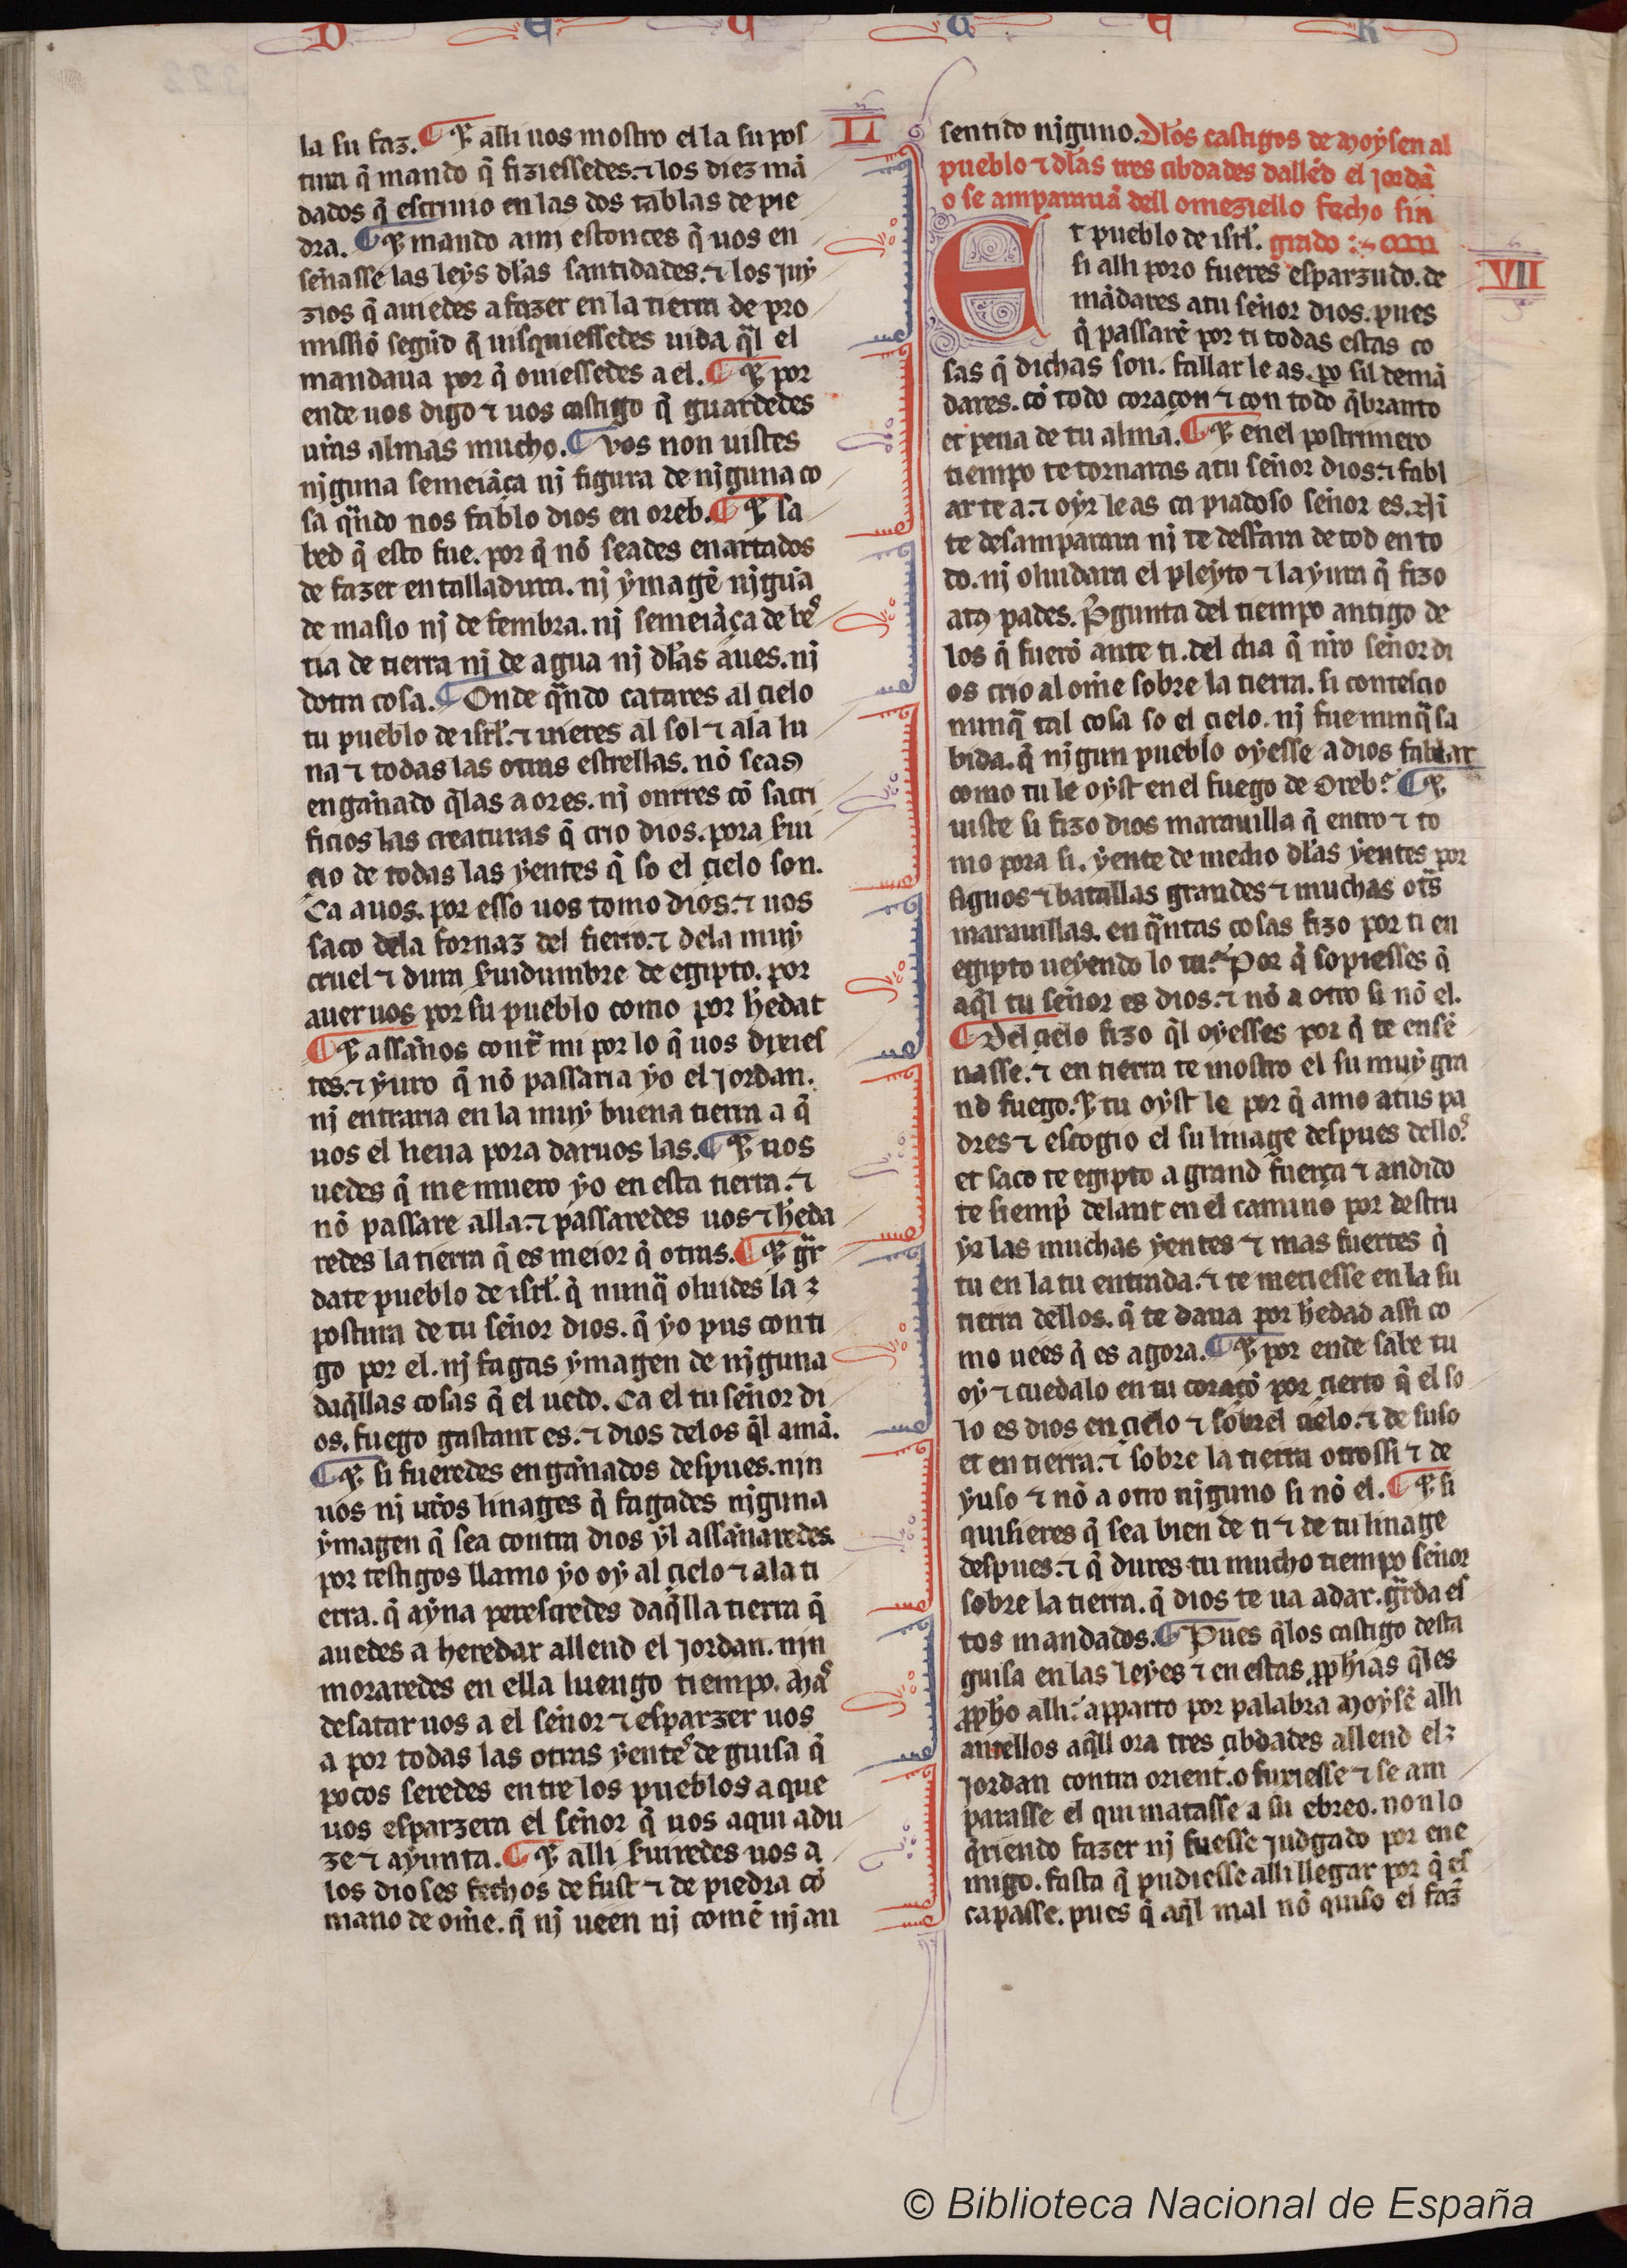 D E U T E R
LI
la su faz. ¶ Et alli uos mostro el la su pos
tura q̃ mando q̃ fiziessedes. ⁊ los diez mã
dados q̃ escriuio en las dos tablas de pie
dra. ¶ Et mando amj estonces q̃ uos en
señasse las leẏs dľas santidades. ⁊ los juẏ
zios q̃ auiedes a fazer en la tierra de pro
missiõ segũd q̃ uisquiessedes uida q̃l el
mandaua por q̃ ouiessedes a el. ¶ Et por
ende uos digo ⁊ uos castigo q̃ guardedes
ur̃as almas mucho. ¶ vos non uistes
njguna semeiãça nj figura de njguna co
sa qñdo nos fablo dios en oreb. ¶ Et sa
bed q̃ esto fue. por q̃ nõ seades enartados
de fazer entalladura. nj ẏmagẽ njgũa
de maslo nj de fembra. nj semeiãça de beˢ
tia de tierra nj de agua nj dľas aues. nj
dotra cosa. ¶ Onde qñdo catares al çielo
tu pueblo de isrľ. ⁊ uieres al sol ⁊ ala lu
na ⁊ todas las otras estrellas. nõ seas
engañado q̃las aores. nj onrres cõ sacri
ficios las creaturas q̃ crio dios. pora ẛui
çio de todas las ẏentes q̃ so el çielo son.
Ca auos. por esso uos tomo dios. ⁊ uos
saco dela fornaz del fierro. ⁊ dela muẏ
cruel ⁊ dura ẛuidumbre de egipto. por
auer uos por su pueblo como por h̃edat
¶ Et assaños contr̃ mi por lo q̃ uos dixies
tes. ⁊ ẏuro q̃ nõ passaria ẏo el jordan.
nj entraria en la muẏ buena tierra a q̃
uos el lieua pora daruos las. ¶ Et uos
uedes q̃ me muero ẏo en esta tierra. ⁊
nõ passare alla. ⁊ passaredes uos ⁊ h̃eda
redes la tierra q̃ es meior q̃ otras. ¶ Et gr̃
date pueblo de isrľ. q̃ nunq̃ oluides la
postura de tu señor dios. q̃ ẏo pus conti
go por el. nj fagas ẏmagen de njguna
daq̃llas cosas q̃ el uedo. Ca el tu señor di
os. fuego gastant es. ⁊ dios delos q̃l amã.
¶ Et si fueredes engañados despues. njn
uos nj ur̃os linages q̃ fagades njguna
ẏmagen q̃ sea contra dios ẏl assañaredes
por testigos llamo ẏo oẏ al çielo ⁊ ala ti
erra. q̃ aẏna peresçredes daq̃lla tierra q̃
auedes a heredar allend el jordan. njn
moraredes en ella luengo tiempo. Maˢ
desatar uos a el señor ⁊ esparzer uos
a por todas las otras ẏenteˢ de guisa q̃
pocos seredes entre los pueblos a que
uos esparzera el señor q̃ uos aqui adu
ze ⁊ aẏunta. ¶ Et alli ẛuiredes uos a
los dioses fechos de fust ⁊ de piedra cõ
mano de om̃e. q̃ nj ueen nj comẽ nj an
sentido njguno. Dľos castigos de moẏsen al
pueblo ⁊ dľas tres cibdades dallẽd el jordã
o se ampararuã dell omeziello fecho sin
Et pueblo de isrľ. grado
VII
si alli poro fueres esparzudo. de
mãdares atu señor dios. pues
q̃ passarẽ por ti todas estas co
sas q̃ dichas son. fallar le as. ꝑo sil demã
dares. cõ todo coraçon ⁊ con todo q̃branto
et pena de tu alma. ¶ Et enel postrimero
tiempo te tornaras atu señor dios. ⁊ fabl
ar te a. ⁊ oẏr le as ca piadoso señor es. Ni
te desamparara nj te desfara de tod en to
do. nj oluidara el pleẏto ⁊ la ẏura q̃ fizo
atꝰ padres. P̃gunta del tiempo antigo de
los q̃ fuerõ ante ti. del dia q̃ nr̃o señor di
os crio al om̃e sobre la tierra. si contesçio
nunq̃ tal cosa so el çielo. nj fue nunq̃ sa
bida. q̃ njgun pueblo oẏesse a dios fablar
como tu le oẏst en el fuego de Oreb. ¶ Et
uiste si fizo dios marauilla q̃ entro ⁊ to
mo pora si. ẏente de medio dľas ẏentes por
signos ⁊ batallas grandes ⁊ muchas otr̃s
marauillas. en qñtas cosas fizo por ti en
egipto ueẏendo lo tu. Por q̃ sopiesses q̃
aq̃l tu señor es dios. ⁊ nõ a otro si nõ el.
¶ Del çielo fizo q̃l oẏesses por q̃ te ense
ñasse. ⁊ en tierra te mostro el su muẏ gra
nd fuego. Et tu oẏst le por q̃ amo atus pa
dres ⁊ escogio el su linage despues delloˢ
et saco te egipto a grand fuerça ⁊ andido
te siemp̃ delant en el camino por destru
ẏr las muchas ẏentes ⁊ mas fuertes q̃
tu en la tu entrada. ⁊ te metiesse en la su
tierra dellos. q̃ te daua por h̃edad assi co
mo uees q̃ es agora. ¶ Et por ende sabe tu
oẏ ⁊ cuedalo en tu coraçõ por çierto q̃ el so
lo es dios en çielo ⁊ sobrel çielo. ⁊ de suso
et en tierra. ⁊ sobre la tierra otrossi ⁊ de
ẏuso ⁊ nõ a otro njguno si nõ el. ¶ Et si
quisieres q̃ sea bien de ti ⁊ de tu linage
despues. ⁊ q̃ dures tu mucho tiempo señor
sobre la tierra. q̃ dios te ua adar. gr̃da es
tos mandados. ¶ Pues q̃los castigo desta
guisa en las leẏes ⁊ en estas ꝓph̃ias q̃les
ꝓpho alli. apparto por palabra moẏsẽ alli
antellos aq̃ll ora tres çibdades allend el
jordan contra orient. o fuxiesse ⁊ se am
parasse el qui matasse a su ebreo. non lo
q̃riendo fazer nj fuesse judgado por ene
migo. fasta q̃ pudiesse alli llegar por q̃ es
capasse. pues q̃ aq̃l mal nõ quiso el faz̃
© Biblioteca Nacional de España